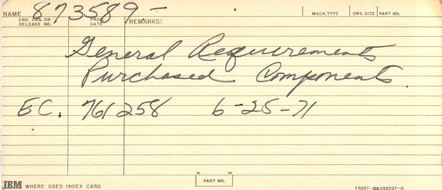 NAME 873589- MACH. TYPE DWG. SIZE PART NO.
ENG. CHG. OR RELEASE NO. DATE REMARKS:
General Requirements
Purchased Components
EC. 761258 6-25-71
PART NO.
IBM WHERE USED INDEX CARD